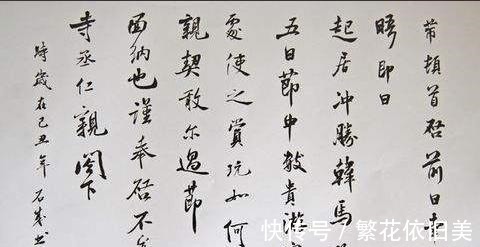 頓首启前日
晤即日
起居冲勝韓馬
五日節中敬貴遊
處使之賞玩如何
親契敢尔過節
面納也谨奉启不
寺丞仁親閣下
時歲在己丑年 石书
快传号/繁花依旧美